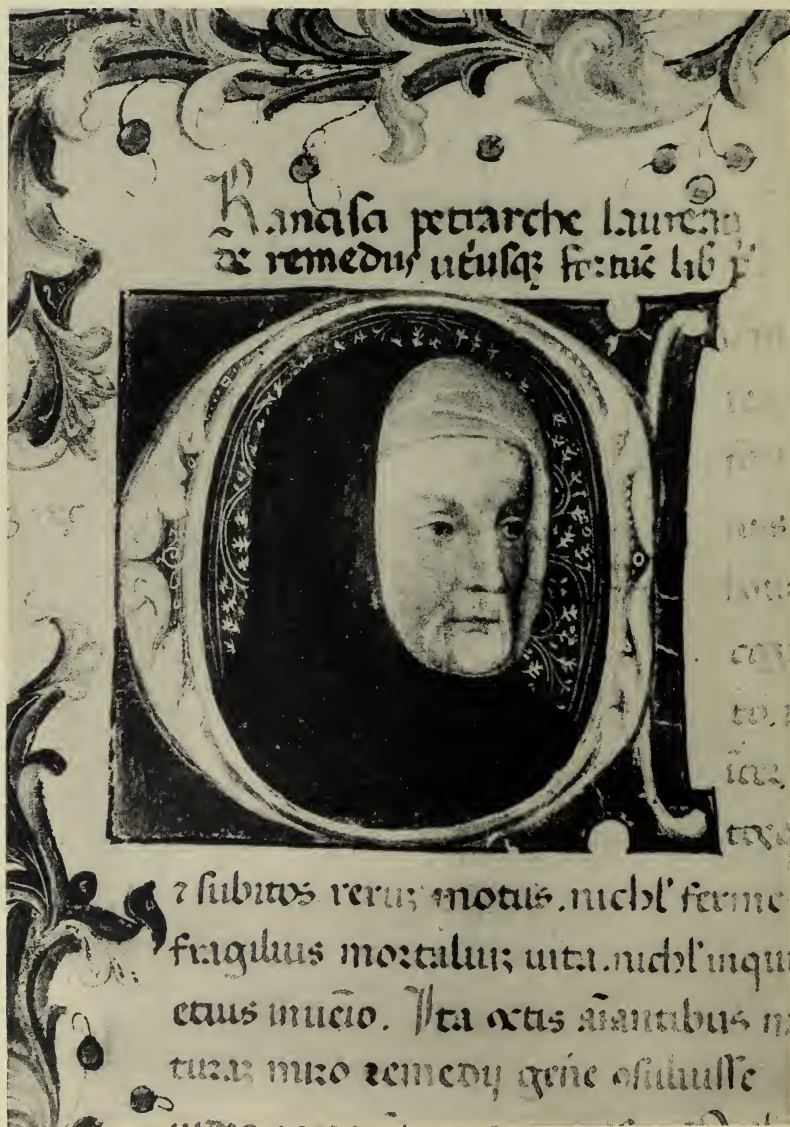 Francisci petrarche laureati
de remedijs utĩusqꝫ fortũe lib p̃
⁊ subitos reruꝫ motus. nichl' ferme
fragilius mortaliuꝫ uita. nichl' inqui
etius inuẽio. Ita cetis aĩantibus na
turaꝫ miro remedij gñe ↄsuluisse